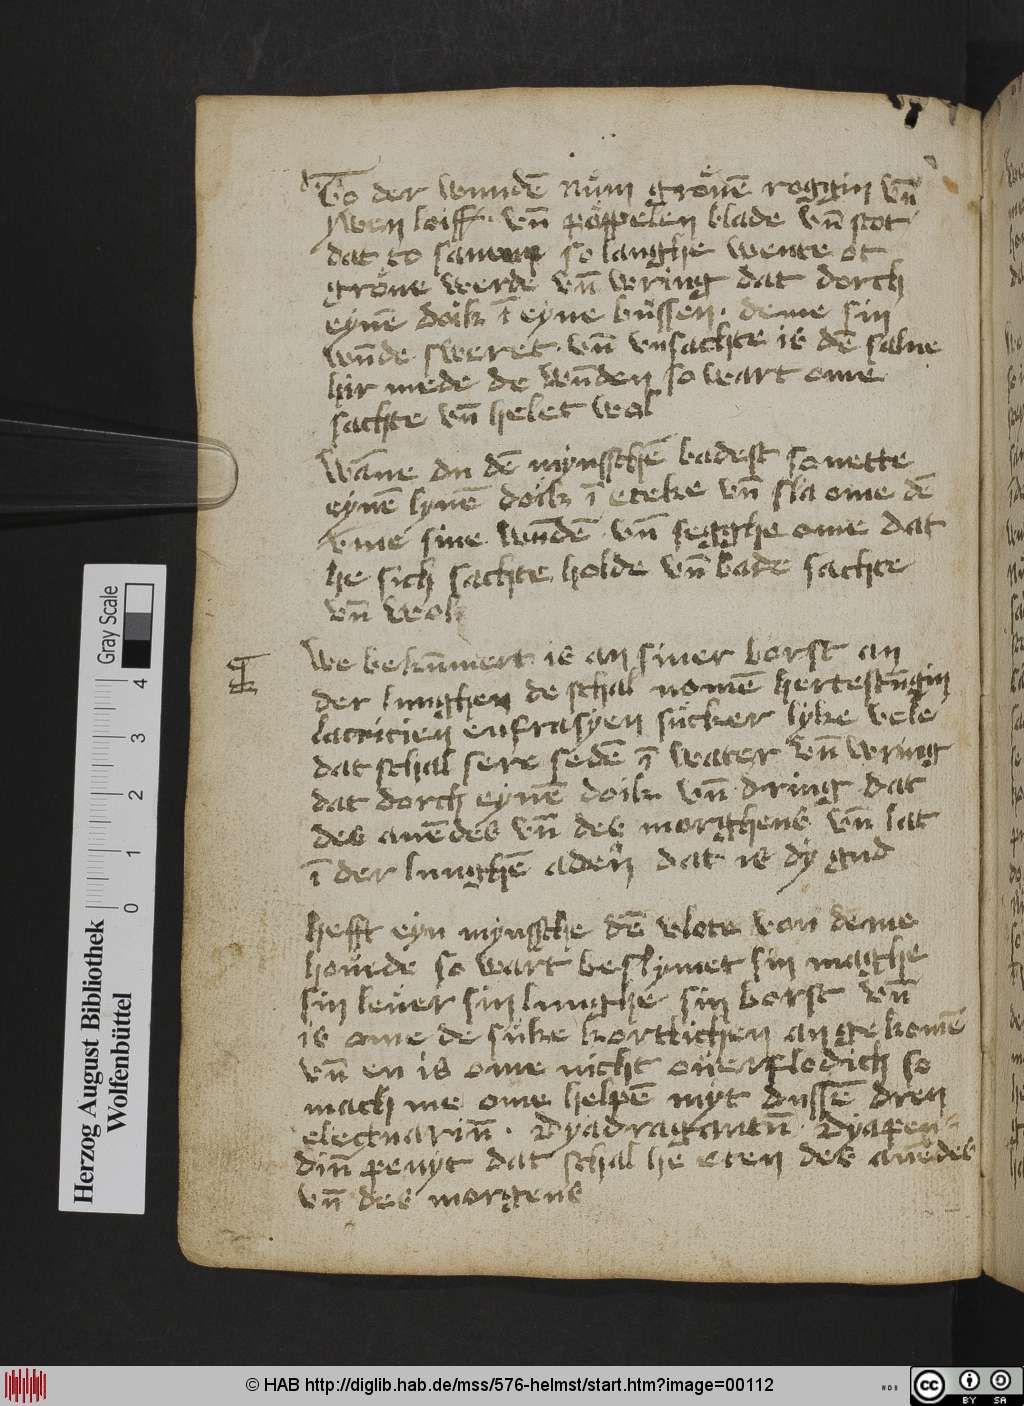 To der wundē nūm grönē roggin vn̄
ywen loiff. vn̄ pöppelen blade vn̄ stot
dat to samene so langhe wente ot
gröne werde vn̄ wring dat dorch
eynē doik ī eyne büssen. deme sin
wn̄de sweret. vn̄ vnsachte is dē salue
hir mede de wn̄den so wart ome
sachte vn̄ helet wol
Wāne du dē mynsschē badest so nette
eynē lynē doik ī eteke vn̄ sla ome dē
vme sine wn̄dē vn̄ segghe ome dat
he sich sachte holde vn̄ bade sachte
vn̄ wol
We bekūmert is an siner borst an
der lunghen de schal nomē hertestūgin
lacricien eufrasyen sücker lyke vele
dat schal sere sedē ī water vn̄ wring
dat dorch eynē doik vn̄ dring dat
des auēdes vn̄ des morghens vn̄ lat
ī der lunghē adern dat is dy gud
hefft eyn mynssche dē vlote von deme
houede so wart beslymet sin maghe
sin leuer sin lunghe sin borst vn̄
is ome de süke kortlichen an gekomē
vn̄ en is ome nicht ouerflodich so
mach me ome helpē myt dussē dren
electuariū. Dyadragantū. Dyapen
diū penyt dat schal he eten des auēdes
vn̄ des morgens
Herzog August Bibliothek
Wolfenbüttel
Gray Scale
0 1 2 3 4
© HAB http://diglib.hab.de/mss/576-helmst/start.htm?image=00112
WDB
cc BY SA